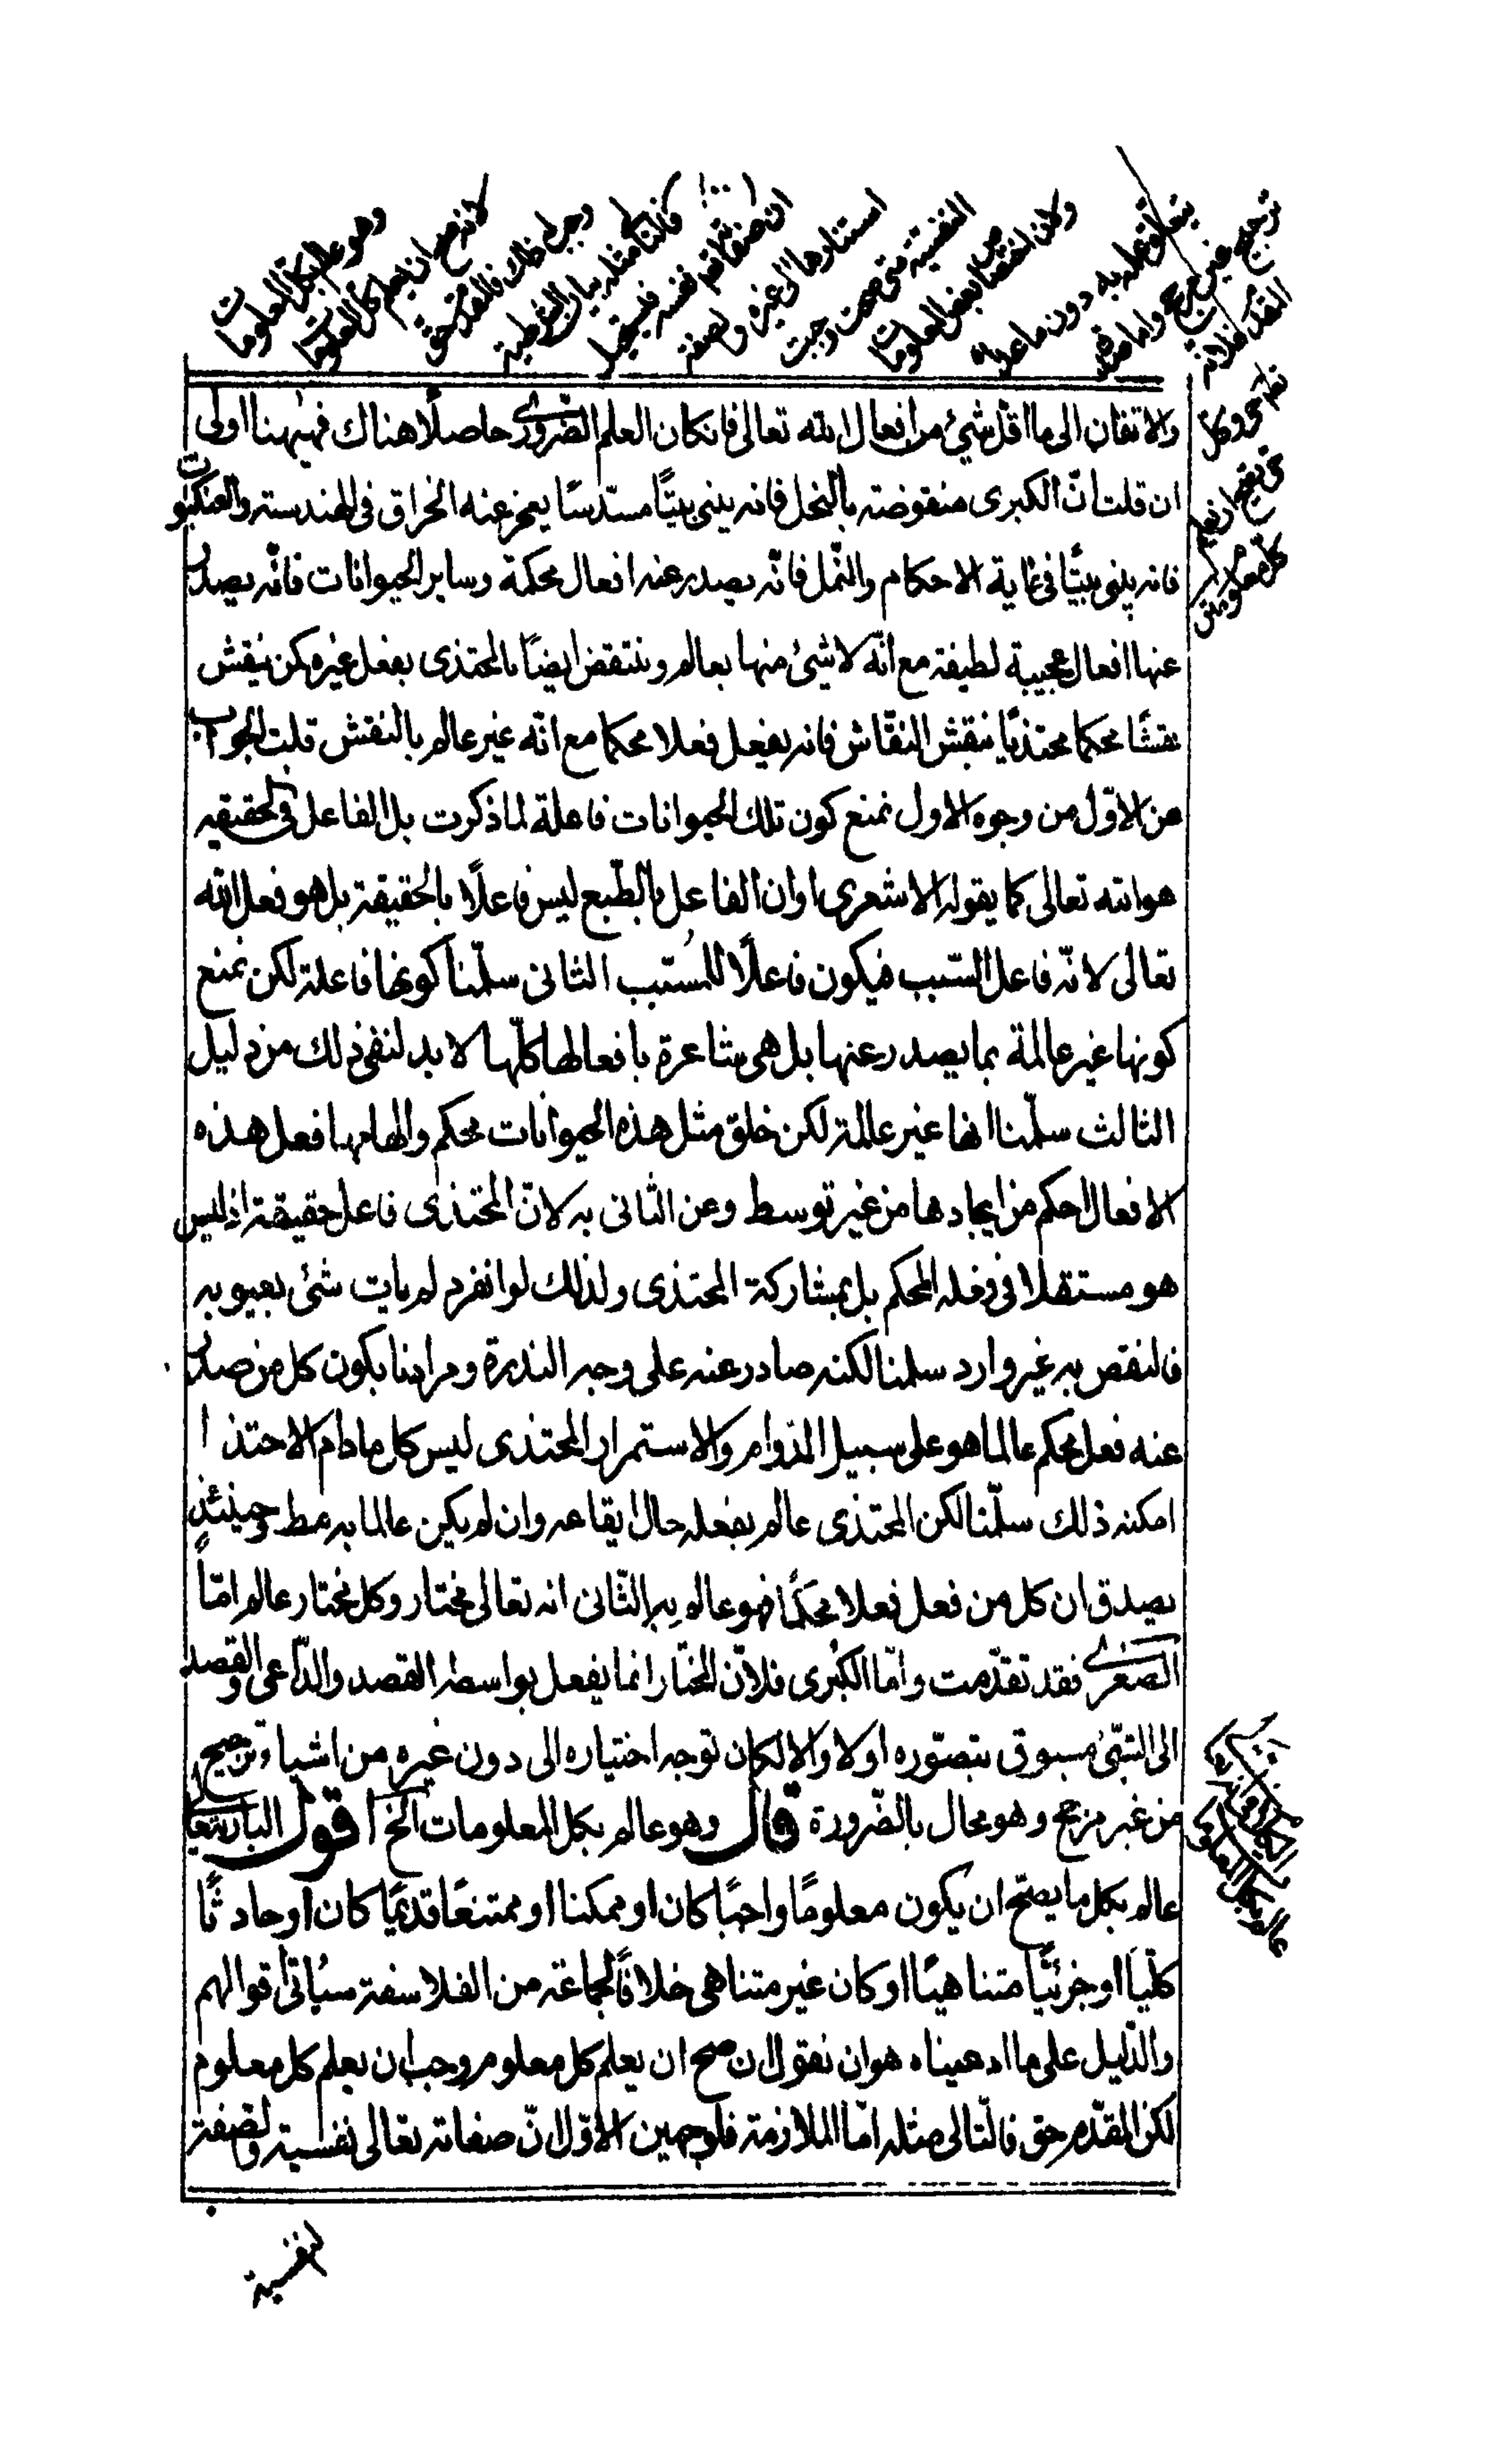 وهو عالم بكل المعلومات
لانه صح ان يعلم كل المعلومات
وجب له ذلك فالمقدم حق
فالتالى مثله بيان الشرطية
ان صفاته نفسية فيستحيل
استنادها الى غيره ولصفة
النفسية متى صحت وجبت
ولان اختصاص بعض المعلومات
بتعلق علمه به دون ما عداه
ترجيح من غير مرجح واما صدق
المقدم فلانه
تعالى حى وكل
حى يصح ان يعلم
كل معلوم متن
والاتقان الى ما اقل شئ من افعال الله تعالى فان كان العلم الضرورى حاصلًا هناك فهيهنا اولى
ان قلت انّ الكبرى منقوضة بالنحل فانه يبنى بيتًا مسدّسًا يعجز عنه الخراق فى الهندسة والعنكبوت
فانه يبنى بيتًا فى غاية الاحكام والنّمل فانّه يصدر عنه افعال محكمة وساير الحيوانات فانّه يصدر
عنها افعال عجيبة لطيفة مع انّه لا شئ منها بعالم وينتقض ايضًا بالمحتذى بفعل غيره كمن ينقش
نقشًا محكما محتذيًا بنقش النقّاش فانه يفعل فعلا محكما مع انّه غير عالم بالنقش قلت الجواب
عن الاوّل من وجوه الاول نمنع كون تلك الحيوانات فاعلة لما ذكرت بل الفاعل فى الحقيقه
هو الله تعالى كما يقوله الاشعرى او ان الفاعل بالطّبع ليس فاعلًا بالحقيقة بل هو فعل الله
تعالى لانّه فاعل السّبب فيكون فاعلًا للمسّبب الثانى سلّمنا كونها فاعلة لكن نمنع
كونها غير عالمة بما يصدر عنها بل هى شاعرة بافعالها كلّها لا بد لنفى ذلك من دليل
الثالث سلّمنا انها غير عالمة لكن خلق مثل هذه الحيوانات محكم والهامها فعل هذه
الافعال احكم من ايجادها من غير توسط وعن الثانى به لانّ المحتذى فاعل حقيقة اذ ليس
هو مستقلا فى فعله المحكم بل بمشاركة المحتذى ولذلك لو انفرد لم يات شئ يعبو به
فالنقص به غير وارد سلمنا لكنه صادر عنه على وجه الندرة ومرادنا بكون كل من صدر
عنه فعل محكم عالما هو على سبيل الدوام والاستمرار المحتذى ليس كل ما دام الاحتذا
امكنه ذلك سلّمنا لكن المحتذى عالم بفعله حال ايقاعه وان لم يكن عالما به مط وحينئذٍ
يصدق ان كل من فعل فعلا محكمًا فهو عالم به الثّانى انه تعالى مختار وكل مختار عالم امّا
الصغرى فقد تقدّمت وامّا الكبرى فلانّ المختار انما يفعل بواسطه القصد والدّاعى والقصد
الى الشئ مسبوق بتصّوره اولا والا لكان توجه اختياره الى دون غيره من اشياء ترجيح
من غير مرجح وهو محال بالضّرورة قال وهو عالم بكل المعلومات الخ اقول البارى تعا
عالم بكل ما يصّح ان يكون معلومًا واجبًا كان او ممكنا او ممتنعًا قديمًا كان او حادثًا
كلّيا او جزئيًّا متناهيًا او كان غير متناهى خلافًا لجماعة من الفلاسفة سياتى اقوالهم
والدّليل على ما ادعيناه هو ان نقول ان صح ان يعلم كل معلوم وجب ان يعلم كل معلوم
لكن المقدّم حق فالتّالى مثله امّا الملازمة فلوجهين الاوّل انّ صفاته تعالى نفسية ولصفة
لنفسية